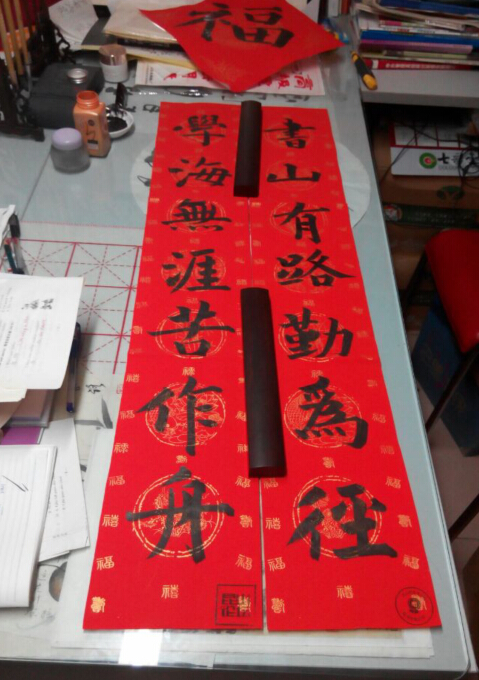 福
書山有路勤為徑
學海無涯苦作舟